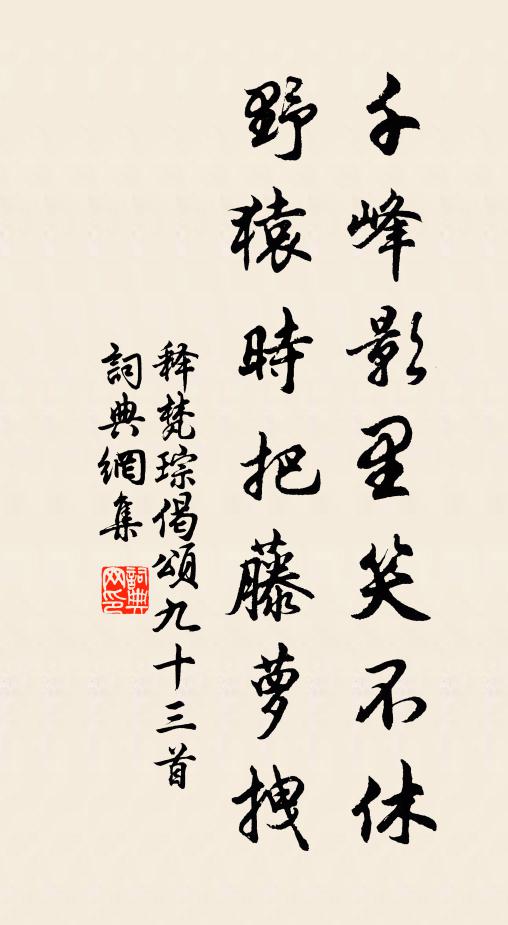 千峰影里笑不休
野猿時把藤萝拽
释梵琮偈頌九十三首
詞典網集
詞典網印